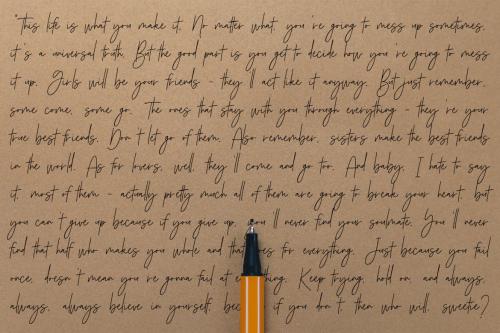 "This life is what you make it. No matter what, you're going to mess up sometimes,
it's a universal truth. But the good part is you get to decide how you're going to mess
it up. Girls will be your friends - they'll act like it anyway. But just remember,
some come, some go. The ones that stay with you through everything - they're your
true best friends. Don't let go of them. Also remember, sisters make the best friends
in the world. As for lovers, well, they'll come and go too. And baby, I hate to say
it, most of them - actually pretty much all of them are going to break your heart, but
you can't give up because if you give up, you'll never find your soulmate. You'll never
find that half who makes you whole and that goes for everything. Just because you fail
once, doesn't mean you're gonna fail at everything. Keep trying, hold on, and always,
always, always believe in yourself, because if you don't, then who will, sweetie?